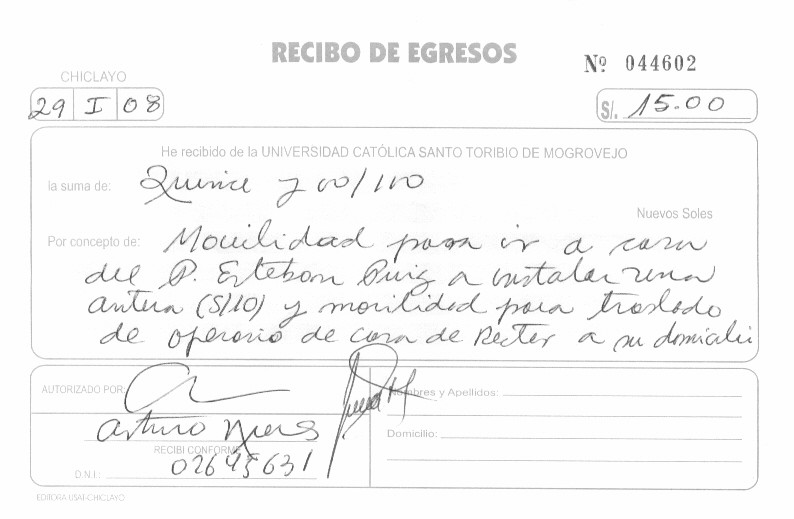 RECIBO DE EGRESOS
Nº 044602
CHICLAYO
29 I 08
S/. 15.00
He recibido de la UNIVERSIDAD CATÓLICA SANTO TORIBIO DE MOGROVEJO
la suma de: Quince y 00/100
Nuevos Soles
Por concepto de: Movilidad para ir a casa
del P. Esteban Puig a instalar una
antena (S/10) y movilidad para traslado
de operario de casa de Rector a su domicilio
AUTORIZADO POR:
Nombres y Apellidos:
Arturo
RECIBI CONFORME
Domicilio:
D.N.I.: 02645631
EDITORA-USAT-CHICLAYO